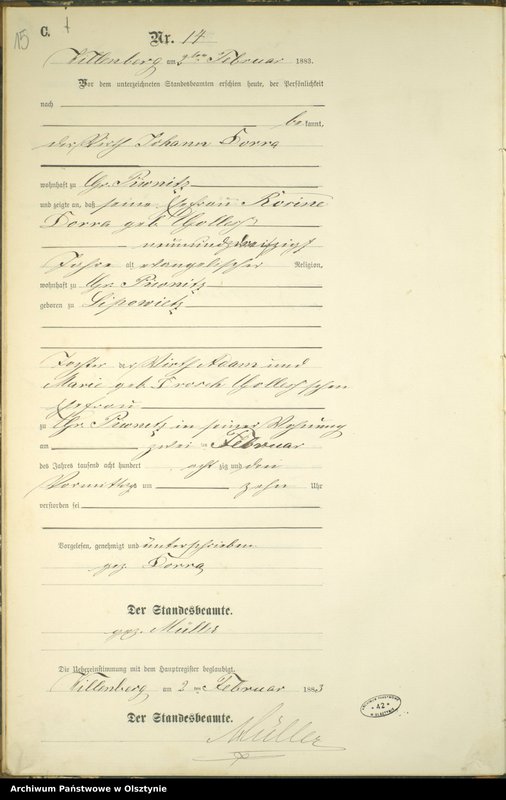 15
C.
Nr. 14
Willenberg am Februar 1883.
Vor dem unterzeichneten Standesbeamten erschien heute, der Persönlichkeit
nach
be kannt,
der Wirth Johann Dorra
wohnhaft zu Gr. Piwnitz
und zeigte an, daß seine Ehefrau
Dorra geb.
neunund
Jahre alt evangelischer Religion,
wohnhaft zu Gr. Piwnitz
geboren zu Lipowietz
Tochter der Wirth Adam und
Marie geb.
Ehefrau
zu Gr. Piwnitz in seiner Wohnung
am zwei Februar
des Jahres tausend acht hundert acht zig und
Vormittags um zehn Uhr
verstorben sei
Vorgelesen, genehmigt und unterschrieben
gez. Dorra
Der Standesbeamte.
gez. Müller
Die Uebereinstimmung mit dem Hauptregister beglaubigt.
Willenberg am Februar 1883
Der Standesbeamte.
Müller
42
Archiwum Państwowe w Olsztynie